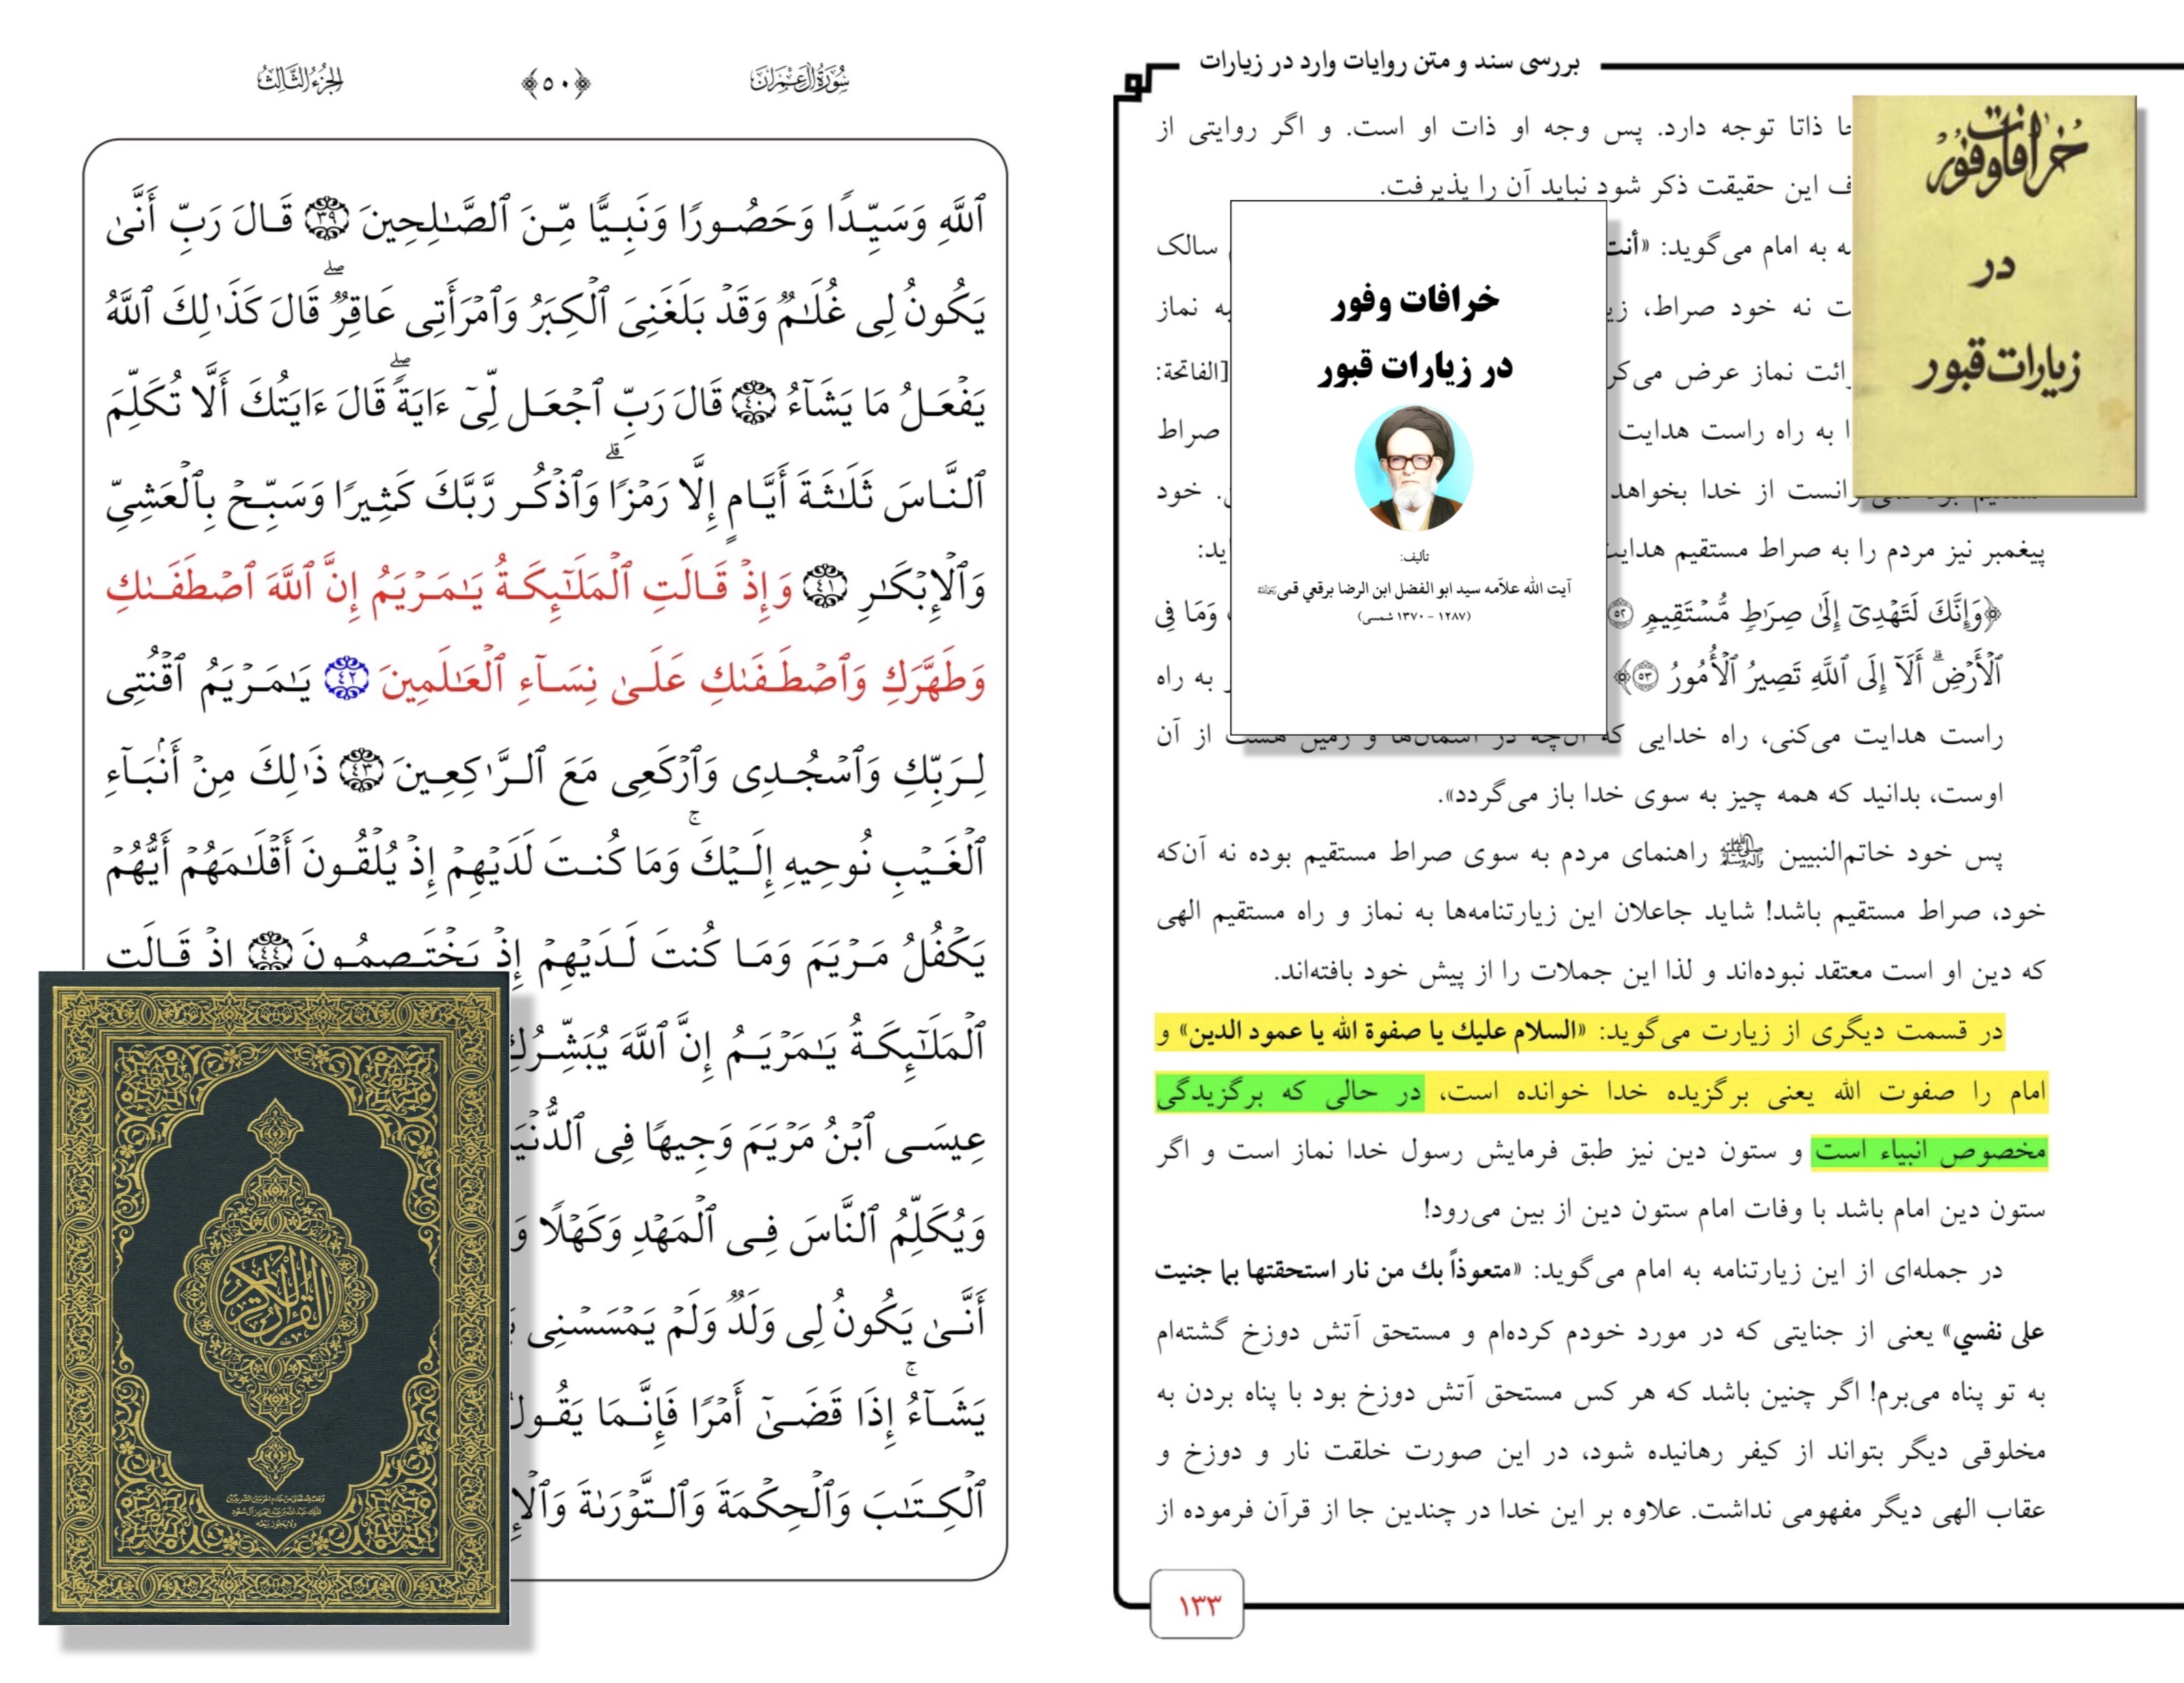 بررسی سند و متن روایات وارد در زیارات
ذاتا توجه دارد. پس وجه او ذات او است. و اگر روایتی از
این حقیقت ذکر شود نباید آن را پذیرفت.
به امام می‌گوید: «أنت سالک
نه خود صراط، به نماز
نماز عرض می‌کر [الفاتحة:
به راه راست هدایت صراط
از خدا بخواهد خود
پیغمبر نیز مردم را به صراط مستقیم
﴿وَإِنَّكَ لَتَهۡدِيٓ إِلَىٰ صِرَٰطٖ مُّسۡتَقِيمٖ ٥٢ وَمَا فِي
ٱلۡأَرۡضِۗ أَلَآ إِلَى ٱللَّهِ تَصِيرُ ٱلۡأُمُورُ ٥٣﴾ به راه
راست هدایت می‌کنی، راه خدایی که آن‌چه در آسمان‌ها و زمین هست از آن
اوست، بدانید که همه چیز به سوی خدا باز می‌گردد».
پس خود خاتم‌النبیین ﷺ راهنمای مردم به سوی صراط مستقیم بوده نه آن‌که
خود، صراط مستقیم باشد! شاید جاعلان این زیارتنامه‌ها به نماز و راه مستقیم الهی
که دین او است معتقد نبوده‌اند و لذا این جملات را از پیش خود بافته‌اند.
در قسمت دیگری از زیارت می‌گوید: «السلام عليك يا صفوة الله يا عمود الدين» و
امام را صفوت الله یعنی برگزیده خدا خوانده است، در حالی که برگزیدگی
مخصوص انبیاء است و ستون دین نیز طبق فرمایش رسول خدا نماز است و اگر
ستون دین امام باشد با وفات امام ستون دین از بین می‌رود!
در جمله‌ای از این زیارتنامه به امام می‌گوید: «متعوذاً بك من نار استحقتها بما جنيت
على نفسي» یعنی از جنایتی که در مورد خودم کرده‌ام و مستحق آتش دوزخ گشته‌ام
به تو پناه می‌برم! اگر چنین باشد که هر کس مستحق آتش دوزخ بود با پناه بردن به
مخلوقی دیگر بتواند از کیفر رهانیده شود، در این صورت خلقت نار و دوزخ و
عقاب الهی دیگر مفهومی نداشت. علاوه بر این خدا در چندین جا از قرآن فرموده از
۱۳۳
خرافات وفور
در
زیارات قبور
خرافات وفور
در زیارات قبور
تألیف:
آیت الله علاّمه سید ابو الفضل ابن الرضا برقعی قمی
(۱۲۸۷ - ۱۳۷۰ شمسی)
سُورَةُ آلِ عِمۡرَان
﴿٥٠﴾
الجُزۡءُ الثَّالِثُ
ٱللَّهِ وَسَيِّدٗا وَحَصُورٗا وَنَبِيّٗا مِّنَ ٱلصَّٰلِحِينَ ٣٩ قَالَ رَبِّ أَنَّىٰ
يَكُونُ لِي غُلَٰمٞ وَقَدۡ بَلَغَنِيَ ٱلۡكِبَرُ وَٱمۡرَأَتِي عَاقِرٞۖ قَالَ كَذَٰلِكَ ٱللَّهُ
يَفۡعَلُ مَا يَشَآءُ ٤٠ قَالَ رَبِّ ٱجۡعَل لِّيٓ ءَايَةٗۖ قَالَ ءَايَتُكَ أَلَّا تُكَلِّمَ
ٱلنَّاسَ ثَلَٰثَةَ أَيَّامٍ إِلَّا رَمۡزٗاۗ وَٱذۡكُر رَّبَّكَ كَثِيرٗا وَسَبِّحۡ بِٱلۡعَشِيِّ
وَٱلۡإِبۡكَٰرِ ٤١ وَإِذۡ قَالَتِ ٱلۡمَلَٰٓئِكَةُ يَٰمَرۡيَمُ إِنَّ ٱللَّهَ ٱصۡطَفَىٰكِ
وَطَهَّرَكِ وَٱصۡطَفَىٰكِ عَلَىٰ نِسَآءِ ٱلۡعَٰلَمِينَ ٤٢ يَٰمَرۡيَمُ ٱقۡنُتِي
لِرَبِّكِ وَٱسۡجُدِي وَٱرۡكَعِي مَعَ ٱلرَّٰكِعِينَ ٤٣ ذَٰلِكَ مِنۡ أَنۢبَآءِ
ٱلۡغَيۡبِ نُوحِيهِ إِلَيۡكَۚ وَمَا كُنتَ لَدَيۡهِمۡ إِذۡ يُلۡقُونَ أَقۡلَٰمَهُمۡ أَيُّهُمۡ
يَكۡفُلُ مَرۡيَمَ وَمَا كُنتَ لَدَيۡهِمۡ إِذۡ يَخۡتَصِمُونَ ٤٤ إِذۡ قَالَتِ
ٱلۡمَلَٰٓئِكَةُ يَٰمَرۡيَمُ إِنَّ ٱللَّهَ يُبَشِّرُكِ
عِيسَى ٱبۡنُ مَرۡيَمَ وَجِيهٗا فِي ٱلدُّنۡيَا
وَيُكَلِّمُ ٱلنَّاسَ فِي ٱلۡمَهۡدِ وَكَهۡلٗا وَ
أَنَّىٰ يَكُونُ لِي وَلَدٞ وَلَمۡ يَمۡسَسۡنِي
يَشَآءُۚ إِذَا قَضَىٰٓ أَمۡرٗا فَإِنَّمَا يَقُولُ
ٱلۡكِتَٰبَ وَٱلۡحِكۡمَةَ وَٱلتَّوۡرَىٰةَ وَٱلۡإِ
القرآن الكريم